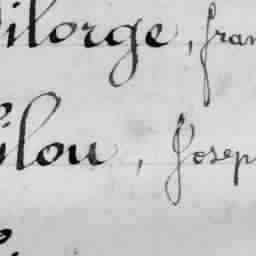 ilorge, fran
ilou, Josep